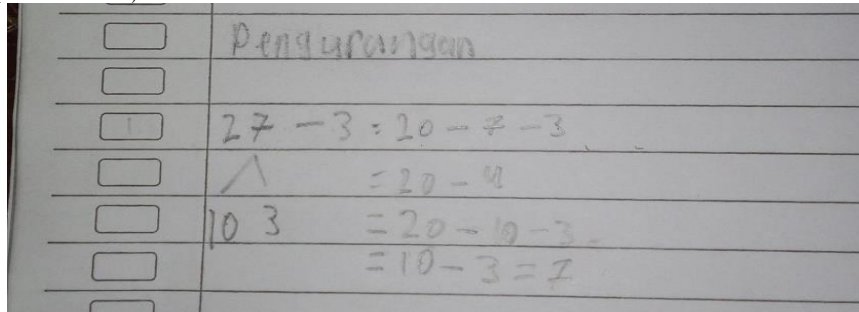 Pengurangan
1 27 - 3 = 20 - 7 - 3
= 20 - 4
10 3 = 20 - 10 - 3
= 10 - 3 = 7